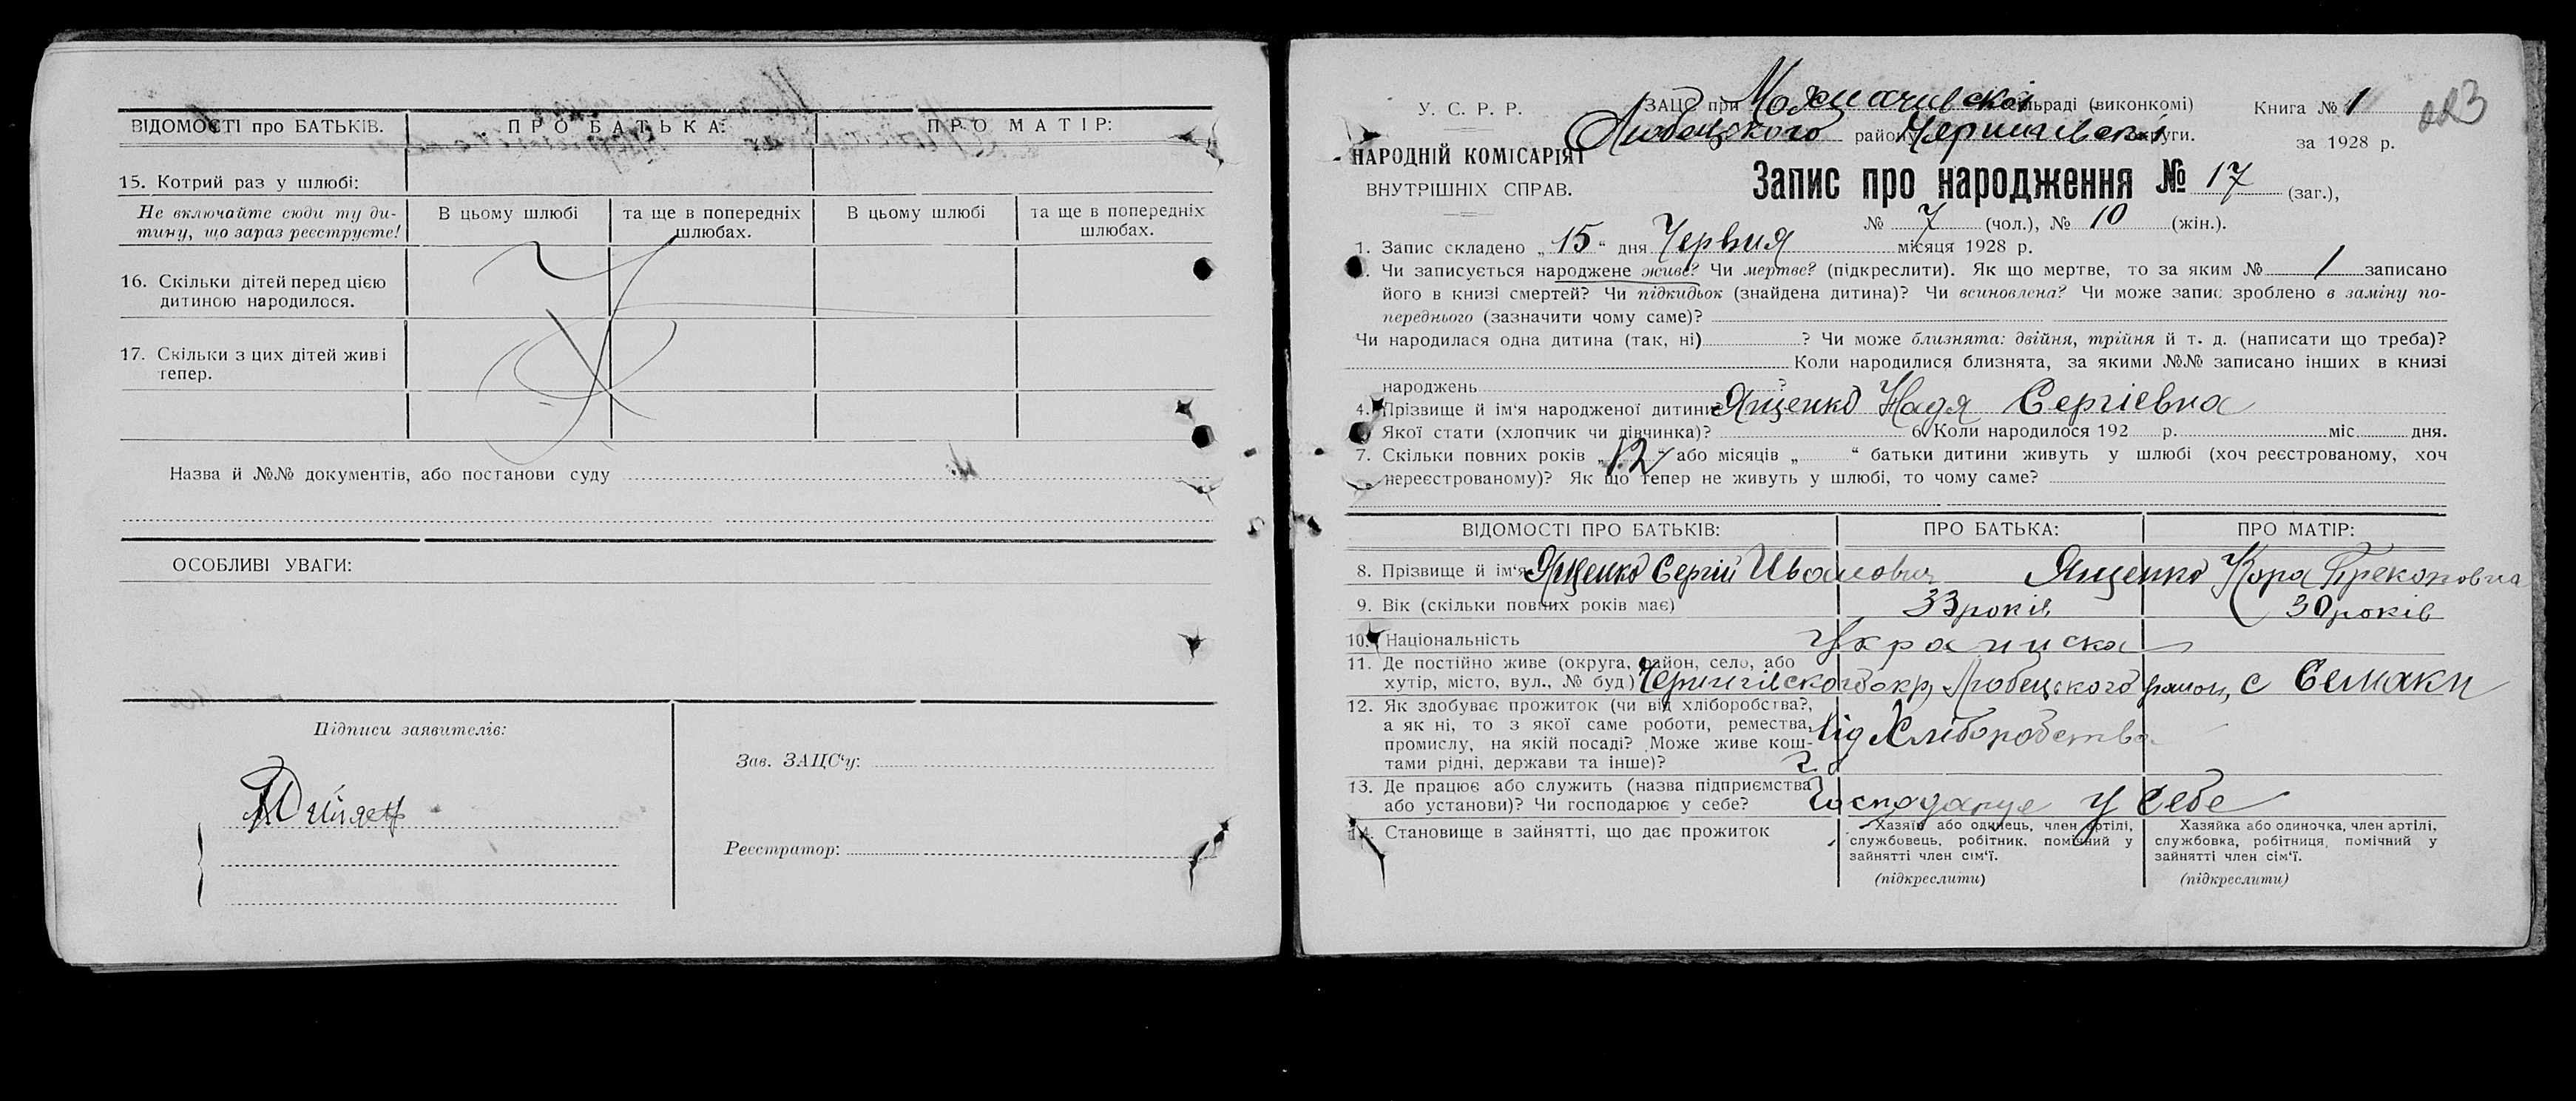 ВІДОМОСТІ про БАТЬКІВ. ПРО БАТЬКА: ПРО МАТІР:
15. Котрий раз у шлюбі:
Не включайте сюди ту ди-
тину, що зараз реєструєте!
В цьому шлюбі
та ще в попередніх
шлюбах.
В цьому шлюбі
та ще в попередніх
шлюбах.
16. Скільки дітей перед цією
дитиною народилося.
17. Скільки з цих дітей живі
тепер.
Назва й №№ документів, або постанови суду
ОСОБЛИВІ УВАГИ:
Підписи заявителів:
Зав. ЗАЦС‘у:
Реєстратор:
У. С. Р. Р.
НАРОДНІЙ КОМІСАРІЯТ
ВНУТРІШНІХ СПРАВ.
ЗАЦС при сільраді (виконкомі)
Любецького району округи.
Книга № 1
223
за 1928 р.
Запис про народження № 17 (заг.),
№ 7 (чол.), № 10 (жін.).
1. Запис складено „15“ дня Червня місяця 1928 р.
Чи записується народжене живе? Чи мертве? (підкреслити). Як що мертве, то за яким № 1 записано
його в книзі смертей? Чи підкидьок (знайдена дитина)? Чи всиновлена? Чи може запис зроблено в заміну по-
переднього (зазначити чому саме)?
Чи народилася одна дитина (так, ні) ? Чи може близнята: двійня, трійня й т. д. (написати що треба)?
Коли народилися близнята, за якими №№ записано інших в книзі
народжень ?
4. Прізвище й ім‘я народженої дитини? Ященко Надя Сергіевна
Якої стати (хлопчик чи дівчинка)? 6. Коли народилося 192 р. міс. дня.
7. Скільки повних років „12“ або місяців „ “ батьки дитини живуть у шлюбі (хоч реєстрованому, хоч
нереєстрованому)? Як що тепер не живуть у шлюбі, то чому саме?
ВІДОМОСТІ ПРО БАТЬКІВ: ПРО БАТЬКА: ПРО МАТІР:
8. Прізвище й ім‘я Ященко Сергій Иванович Ященко
9. Вік (скільки повних років має) 33 років 30 років
10. Національність Украинска
11. Де постійно живе (округа, район, село, або
хутір, місто, вул., № буд) Чернигівского окр, Любецького район, с Семаки
12. Як здобуває прожиток (чи від хліборобства?,
а як ні, то з якої саме роботи, ремества,
промислу, на якій посаді? Може живе кош-
тами рідні, держави та інше)?
від Хліборобства
13. Де працює або служить (назва підприємства
або установи)? Чи господарює у себе?
Господарує у себе
14. Становище в зайнятті, що дає прожиток
Хазяїн або одинець, член артілі,
службовець, робітник, помічний у
зайнятті член сім‘ї.
(підкреслити)
Хазяйка або одиночка, член артілі,
службовка, робітниця, помічний у
зайнятті член сім‘ї.
(підкреслити)